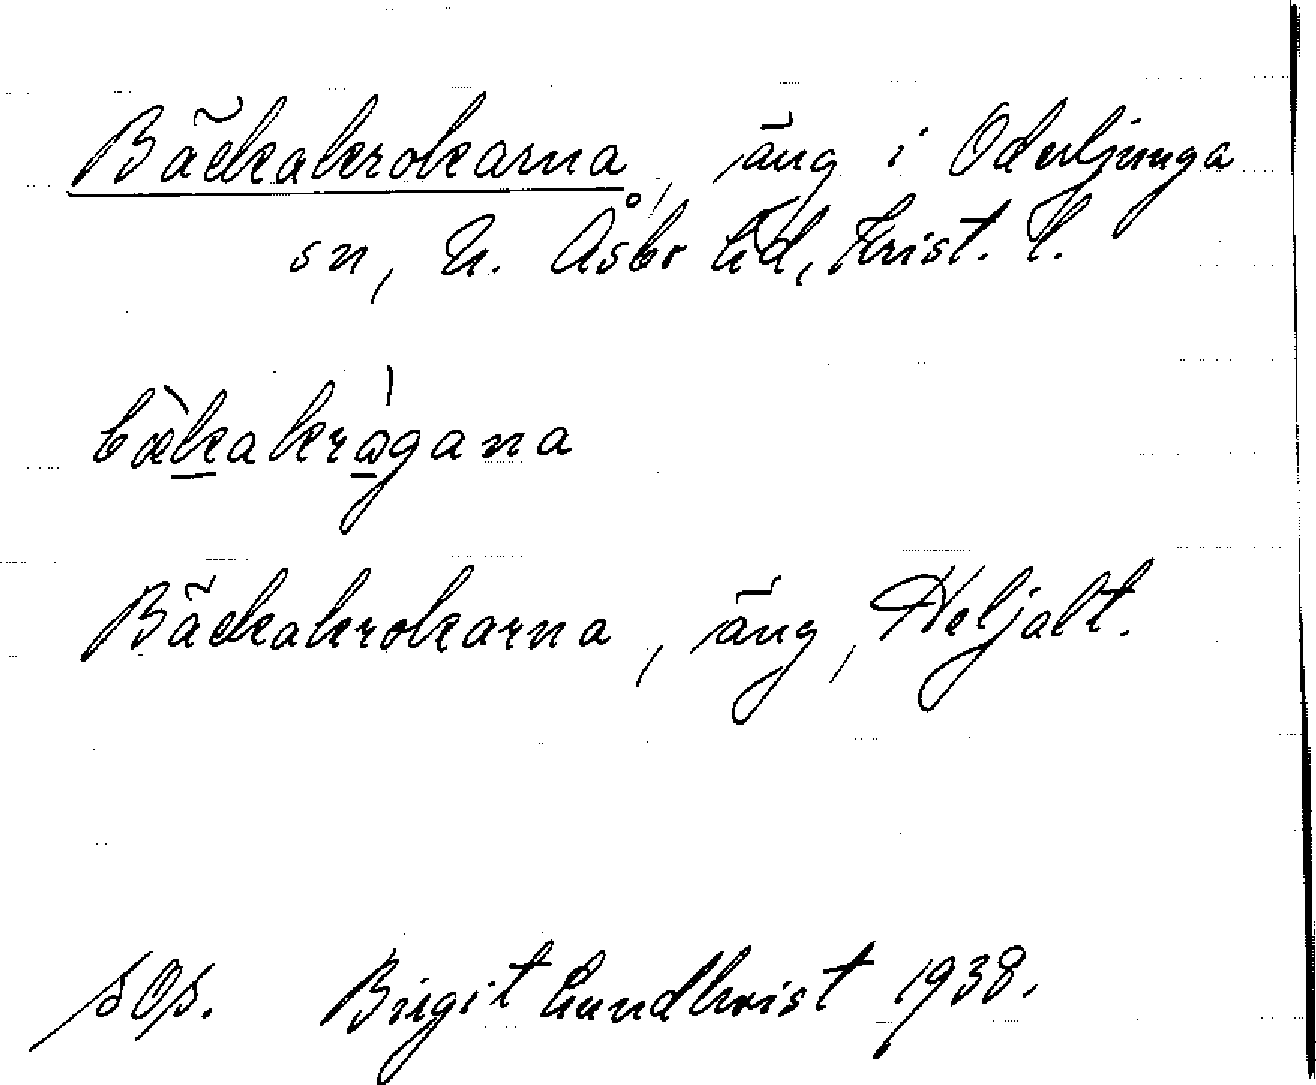 Bäckakrokarna, äng i Oderljunga
sn, N. Åsbo hd, Krist. l.
bækakrågana
Bäckakrokarna, äng, Heljalt.
SOS. Birgit Lundkvist 1938.